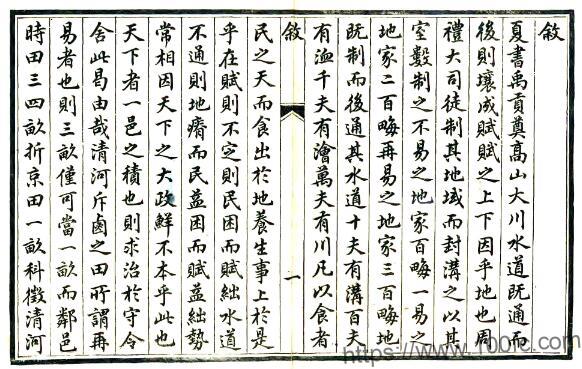 敘
夏書禹貢奠高山大川水道既通而
後則壤成賦賦之上下因乎地也周
禮大司徒制其地域而封溝之以其
室數制之不易之地家百晦一易之
地家二百晦再易之地家三百晦地
既制而後通其水道十夫有溝百夫
有洫千夫有澮萬夫有川凡以食者
敘
一
民之天而食出於地養生事上於是
乎在賦則不定則民困而賦絀水道
不通則地瘠而民益困而賦益絀勢
常相因天下之大政鮮不本乎此也
天下者一邑之積也則求治於守令
舍此曷由哉清河斥鹵之田所謂再
易者也則三畝僅可當一畝而鄰邑
時田三四畝折京田一畝科徵清河
https://www.100rc.com